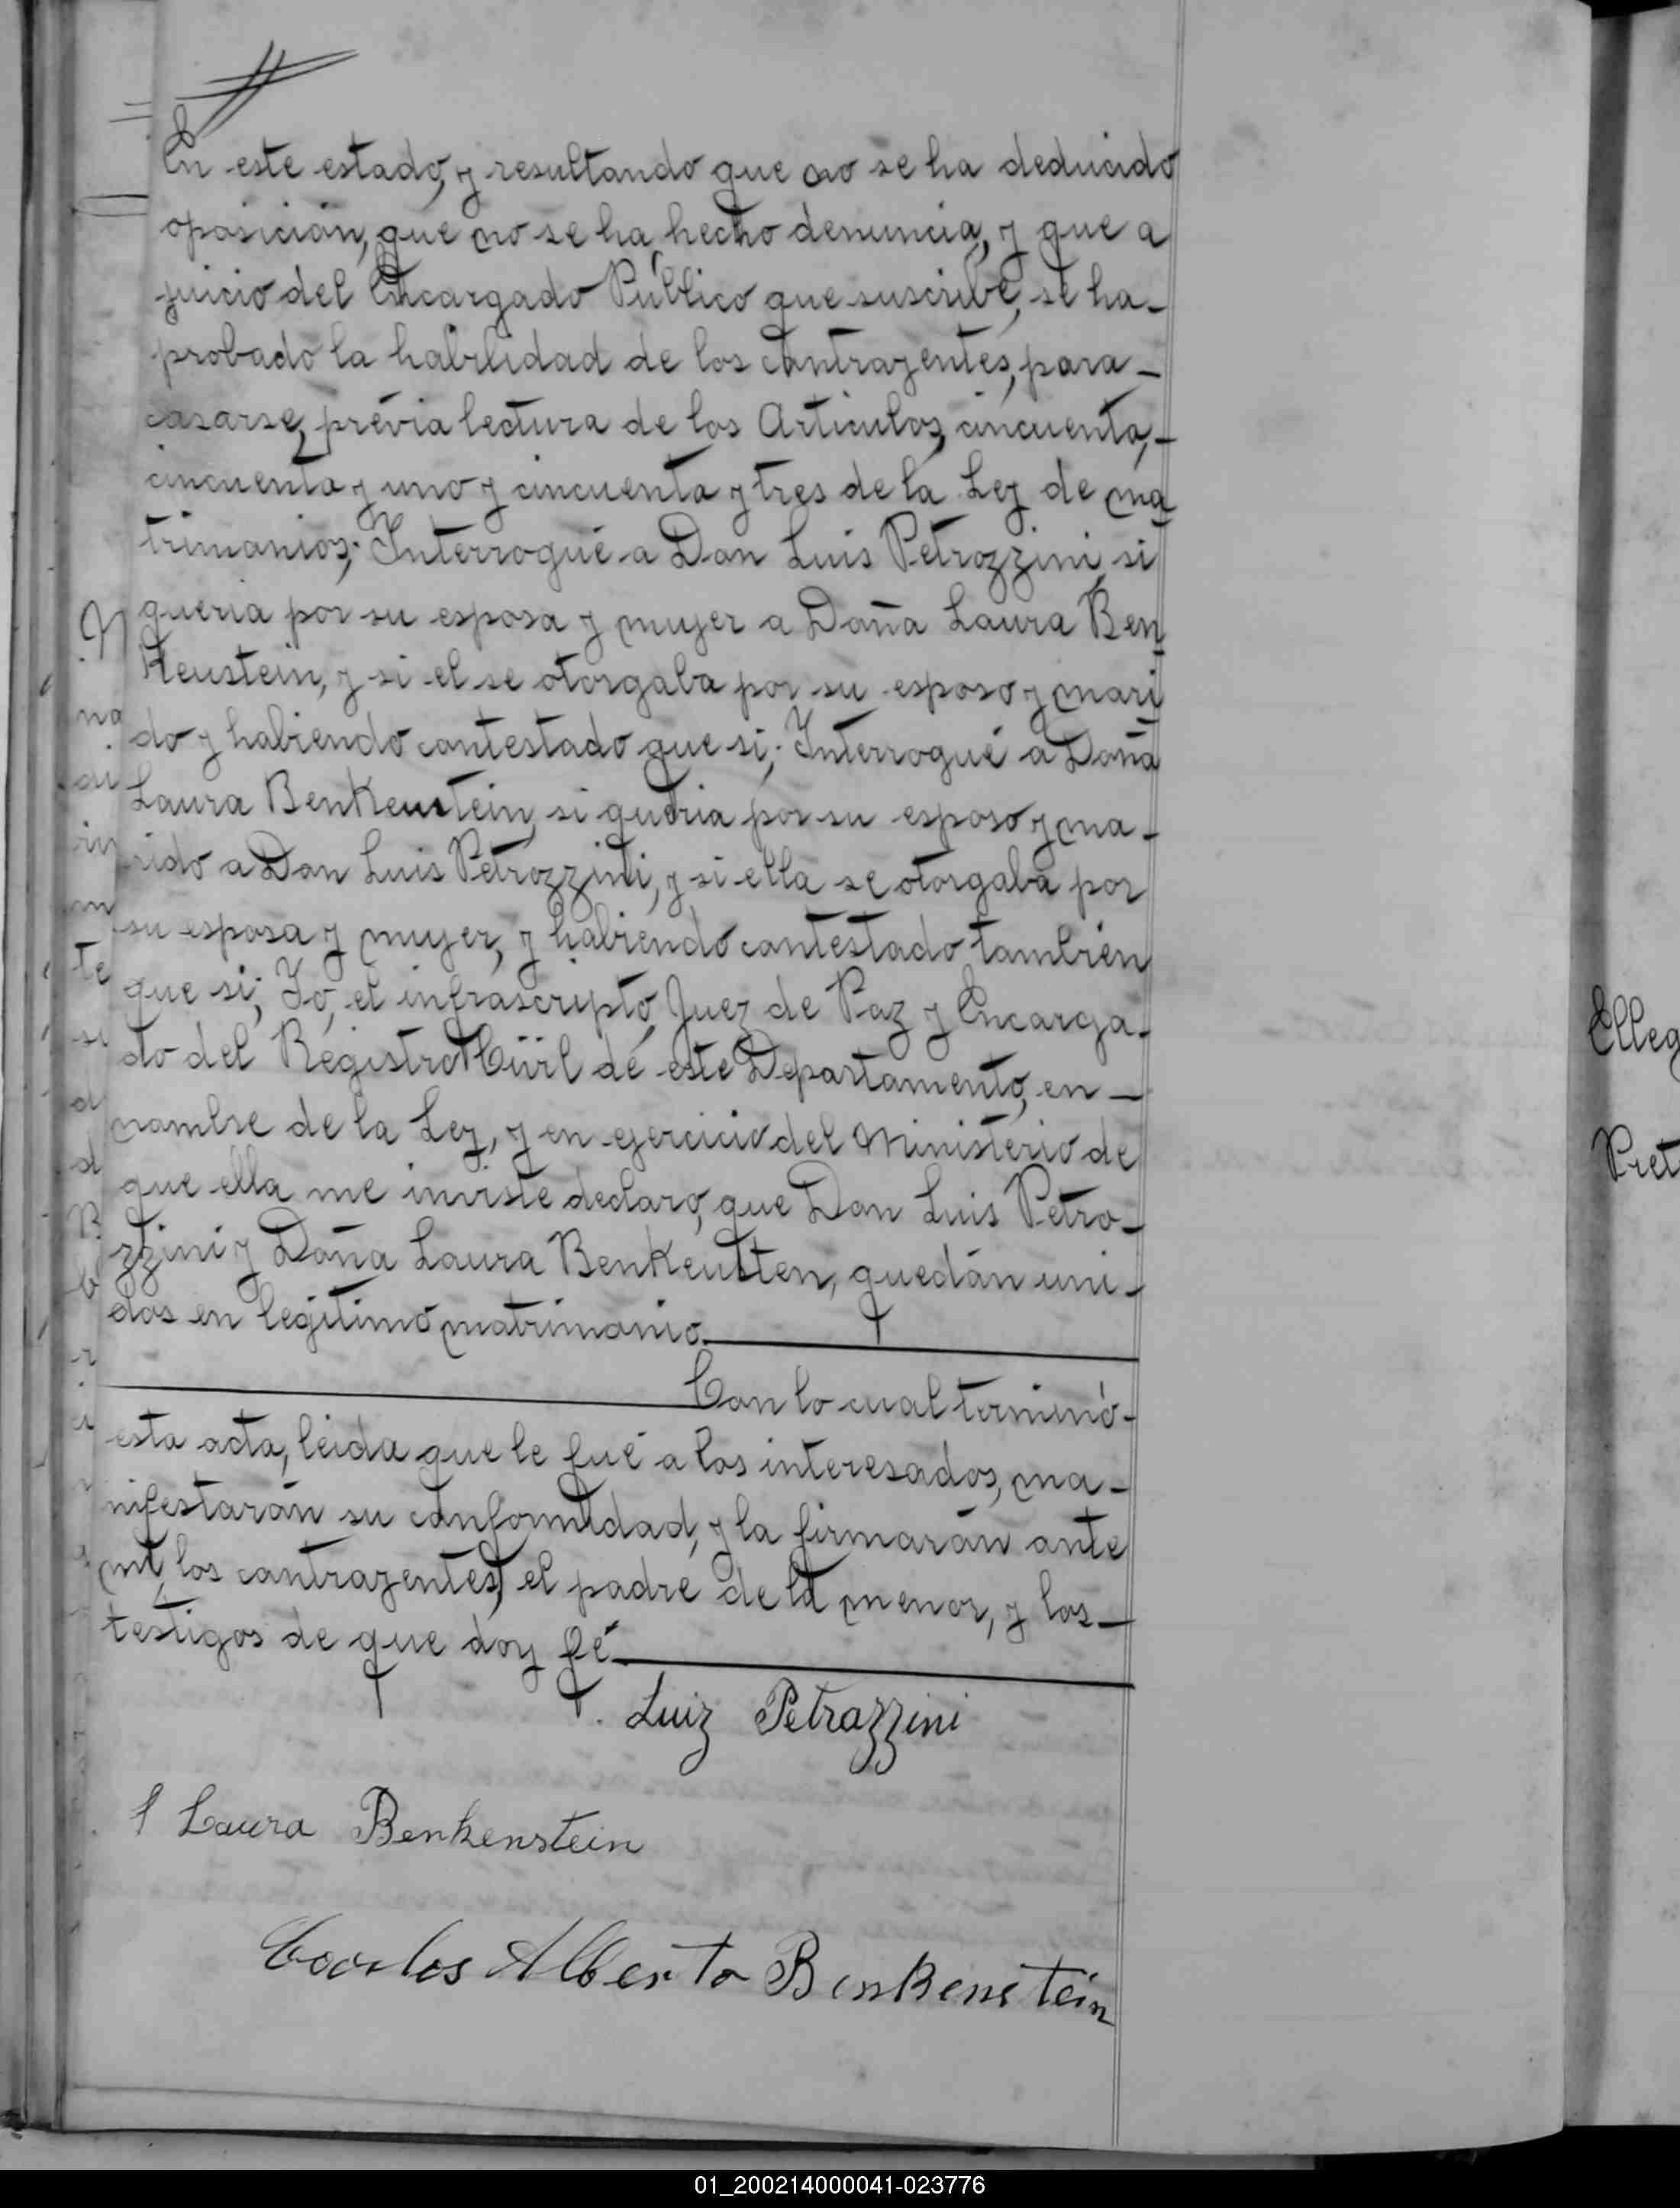 En este estado, y resultando que no se ha deducido
oposición, que no se ha hecho denuncia, y que a
juicio del Encargado Público que suscribe, se ha-
probado la habilidad de los contrayentes, para-
casarse, prévia lectura de los Articulos, cincuenta,-
cincuenta y uno y cincuenta y tres de la Ley de ma
trimonios; Interrogué a Don Luis Petrozzini, si
queria por su esposa y mujer a Doña Laura Ben
Keustein, y si el se otorgaba por su esposo y mari
do y habiendo contestado que si; Interrogué a Doña
Laura BenKeustein, si queria por su esposo y ma-
rido a Don Luis Petrozzini, y si ella se otorgaba por
su esposa y mujer, y habiendo contestado tambien
que si; Yó, el infrascripto, Juez de Paz y Encarga-
do del Registro Civil de este Departamento, en-
nombre de la Ley, y en ejercicio del Ministerio de
que ella me inviste declaro, que Don Luis Petro-
zzini y Doña Laura BenKeusten, quedán uni-
dos en legitimo matrimonio.
Con lo cual terminó-
esta acta, leida que le fué a los interesados, ma-
nifestarán su conformidad, y la firmarán ante
mi, los contrayentes, el padre de la menor, y los-
testigos de que doy fé.
Luiz Petrazzini
Laura Benkenstein
Carlos Alberto Benkenstein
Elleg
Piet
01_200214000041-023776